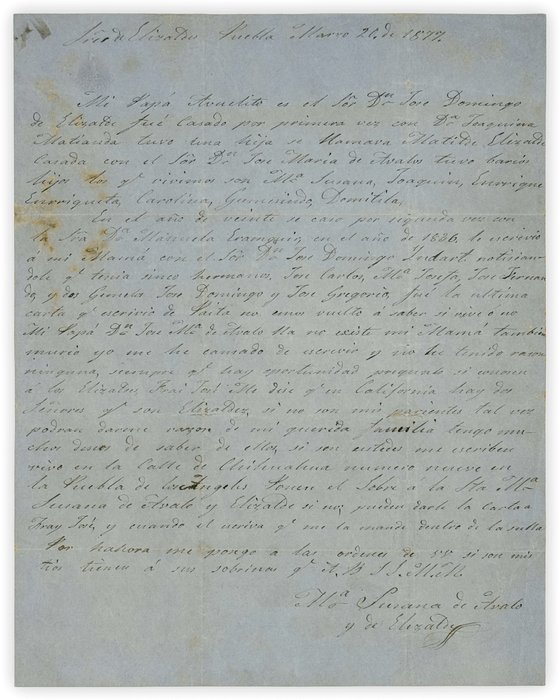 Sres de Elizalde Puebla Marzo 26. de 1877.
Mi Papá Avuelito es el Sõr Dn Jose Domingo
de Elizalde fué Casado por primera vez con Dª Joaquina
tuvo una hija se llamava Matilde Elizalde
Casada con el Sõr Dn Jose Maria de Avalos tuvo barios
hijos los qe vivimos son Mª Susana, Joaquin, Enrrique
Enrriqueta, Carolina, Gumecindo, Domitila,
En el año de veinte se caso por segunda vez con
la Sra Dª Manuela en el año de 1826. le escrivio
á mi Mamá con el Sõr Dn Jose Domingo Indart notician-
dole qe tenia sinco hermanos, Jose Carlos, Mª Josefa, Jose Fernan
do, y dos Gemelos Jose Domingo y Jose Gregorio, fué la ultima
carta qe escrivio de Paita no emos vuelto á saber si vive o no
Mi Papá Dn Jose Mª de Avalo lla no existe mi Mamá tambien
murio yo me he cansado de escrivir y no he tenido razon
ninguna, siempre qe hay oportunidad pregunto si conosen
á los Elizaldes, Frai José Me dise qe en California hay dos
Señores qe son Elizaldes, si no son mis parientes tal vez
podran darme razon de mi querida familia tengo mu-
chos deseos de saber de ellos, si son ustedes me escriben
vivo en la Calle de Chihuahua numero nueve en
la Puebla de los Angeles Ponen el Sobre á la Sta Mª
Susana de Avalo y Elizalde si no, pueden darle la carta a
Fray José, y cuando el escriva qe me la mande dentro de la sulla
Por hahora me pongo a las ordenes de VV si son mis
tios tienen á sus sobrinas qe
Mª Susana de Avalo
y de Elizalde